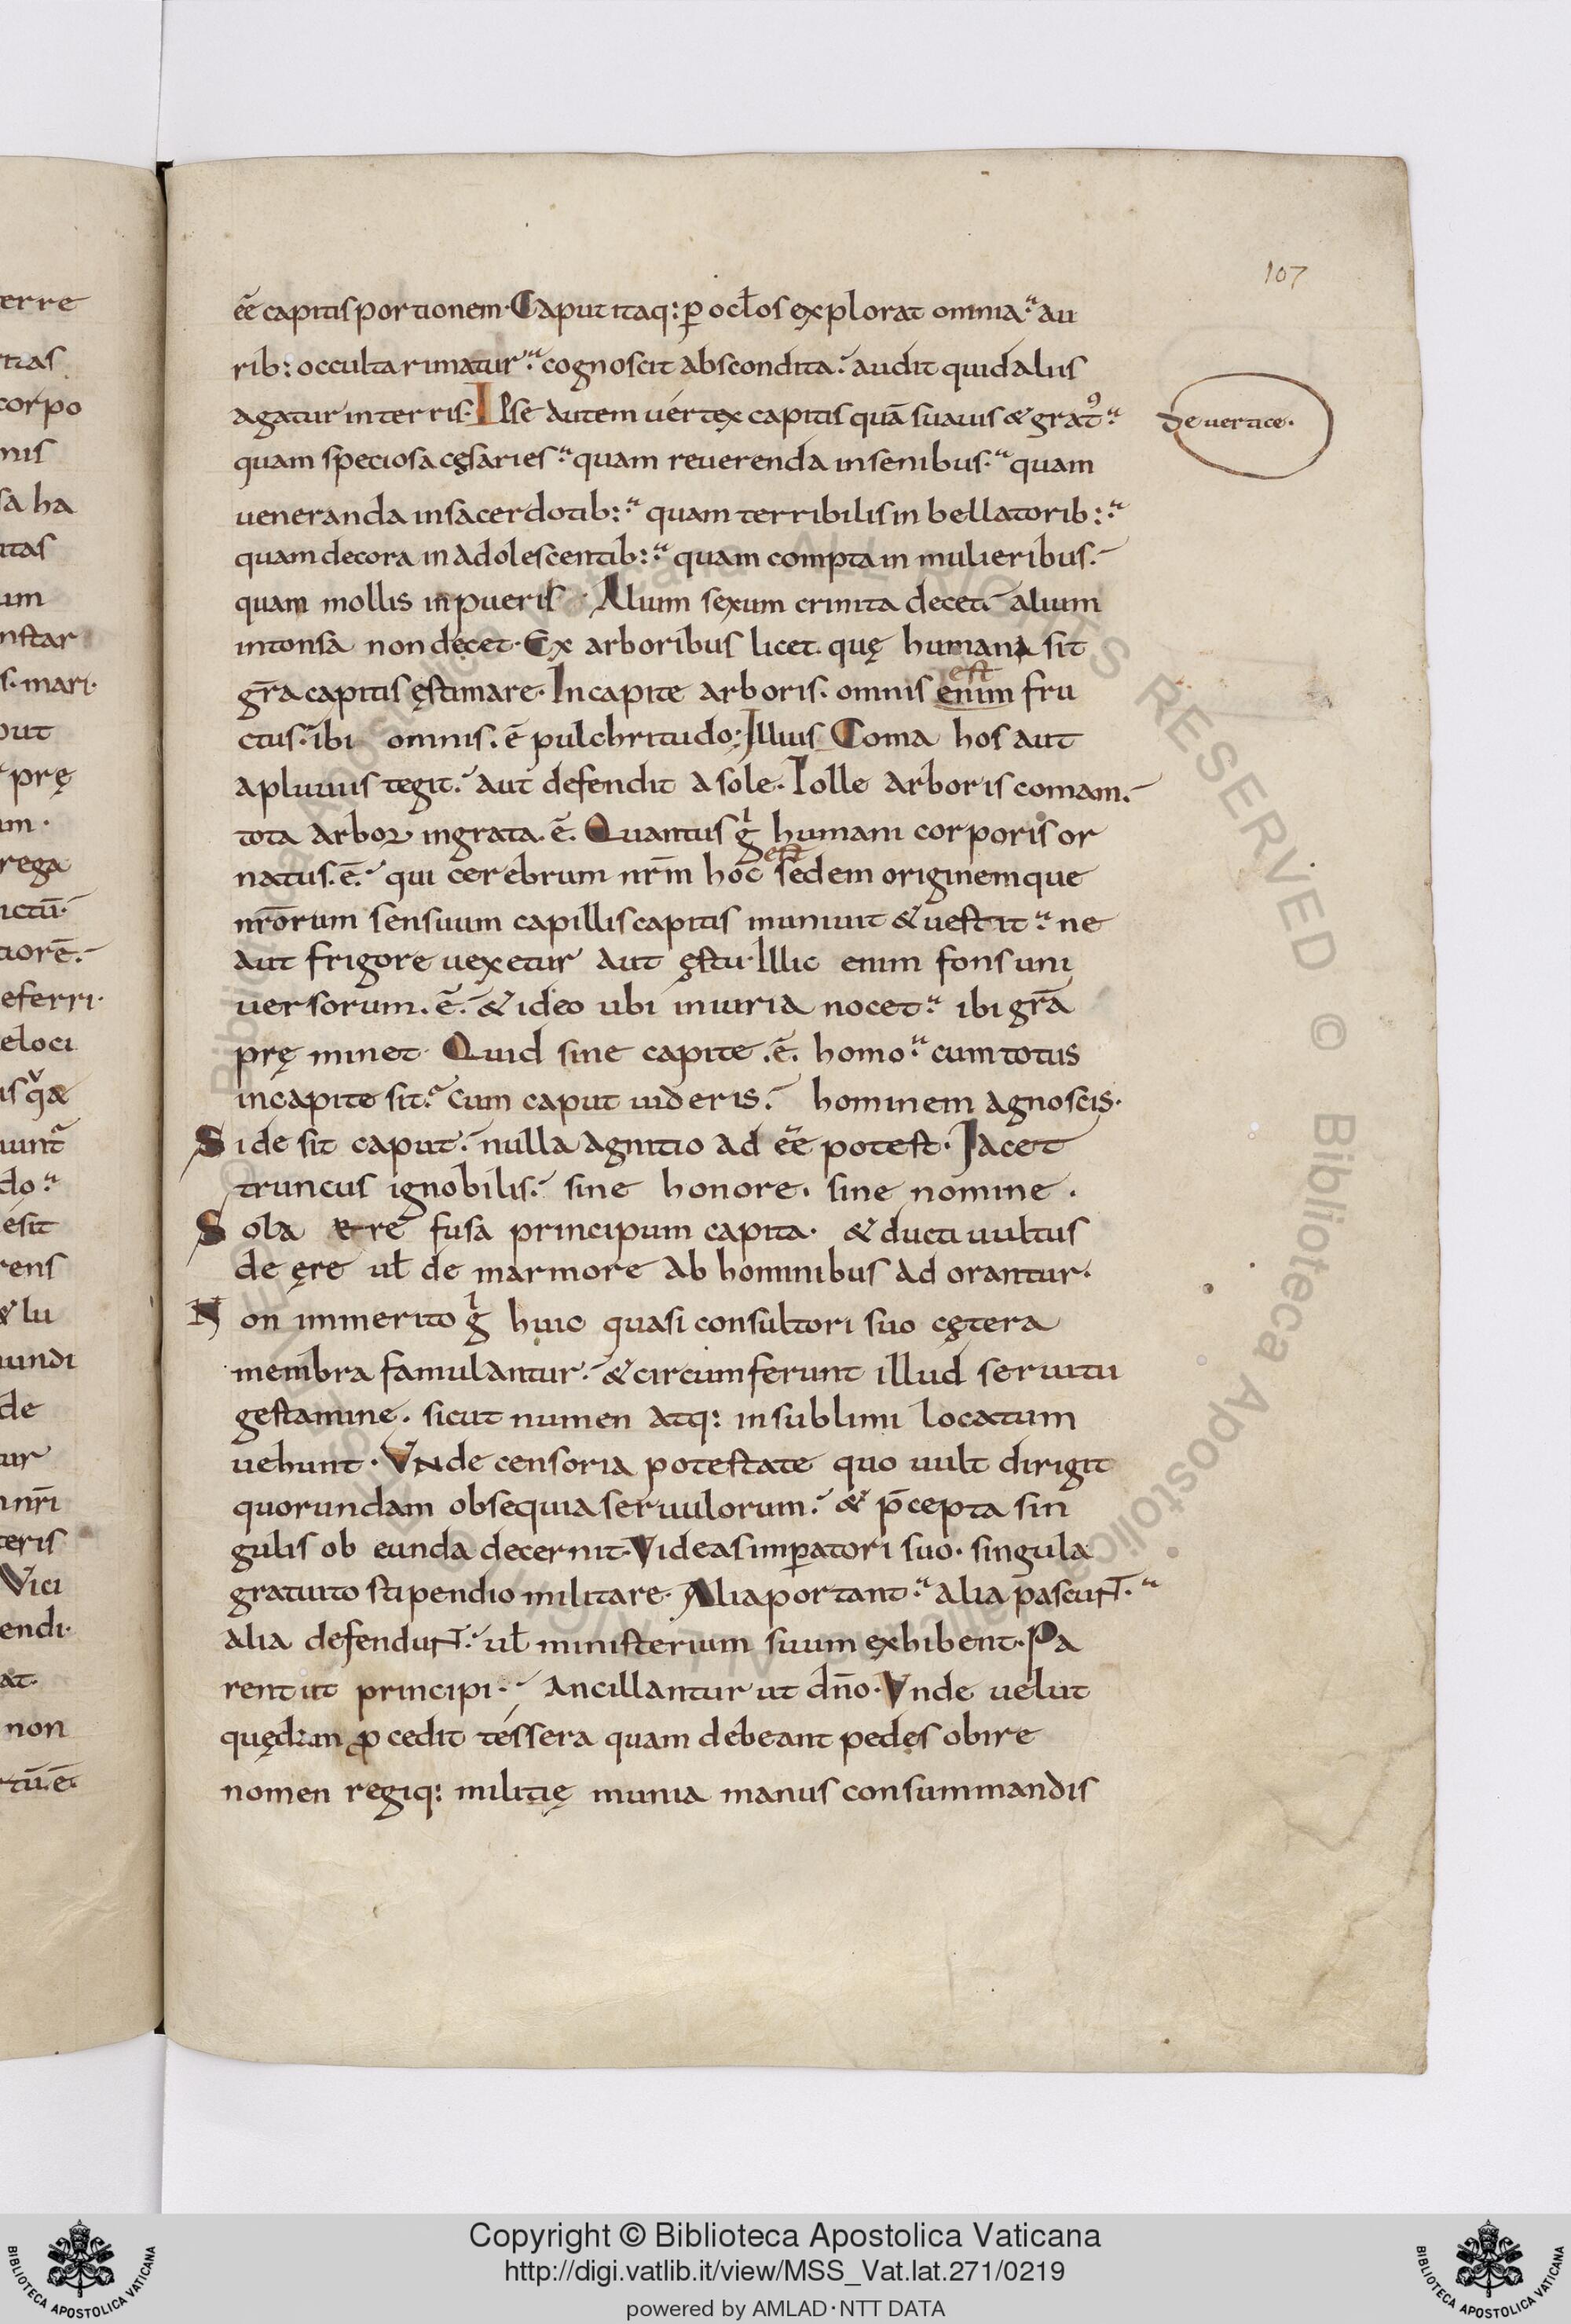 107
eē capitis portionem. Caput itaq: ꝑ ocłos explorat omnia. au
rib: occulta rimatur. cognoscit abscondita. audit quid aliis
agatur in terris. Ipse autem uértex capitis quā suauis & gratꝰ.
De uertice.
quam speciosa cęsaries. quam reuerenda in senibus. quam
ueneranda in sacerdotib:. quam terribilis in bellatorib:.
quam decora in adolescentib:. quam compta in mulieribus.
quam mollis in pueris. Alium sexum crinita decet. alium
intonsa non decet. Ex arboribus licet. quę humana sit
gr̄a capitis ęstimare. In capite arboris. omnis enim fru
est
ctus. ibi omnis. ē pulchritudo: Illius Coma hos aut
a pluuiis tegit. aut defendit a sole. Tolle arboris comam.
tota arbor ingrata. ē. Quantus g̍ humani corporis or
natus. ē. qui cerebrum nr̄m hoc sedem originemque
est
nr̄orum sensuum capillis capitis muniuit & uestit. ne
aut frigore uexetur aut ęstu. Illic enim fons uni
uersorum. ē. & ideo ubi iniuria nocet. ibi gr̄a
prę minet. Quid sine capite .ē. homo. cum totus
in capite sit. Cum caput uideris. hominem agnoscis.
Si de sit caput. nulla agnitio ad eē potest. Jacet
truncus ignobilis. sine honore. sine nomine.
Sola ere fusa principum capita. & ducti uultus
de ęre uł de marmore ab hominibus ad orantur.
Non immerito g̍ huic quasi consultori suo cętera
membra famulantur. & circumferunt illud seruitu
gestamine. sicut numen atq: in sublimi locatum
uehunt. Vnde censoria potestate quo uult dirigit
quorundam obsequia seruulorum. & p̄cepta sin
gulis ob eunda decernit. Videas imꝑatori suo. singula
gratuito stipendio militare. Alia portant. alia pascunt.
alia defendunt. uł ministerium suum exhibent. Pa
rent ut principi. Ancillantur ut dn̄o. Vnde uelut
quędam ꝓcedit téssera quam debeant pedes obire
nomen regiq: militię munia manus consummandis
Copyright © Biblioteca Apostolica Vaticana
http://digi.vatlib.it/view/MSS_Vat.lat.271/0219
powered by AMLAD·NTT DATA
BIBLIOTECA APOSTOLICA VATICANA
BIBLIOTECA APOSTOLICA VATICANA